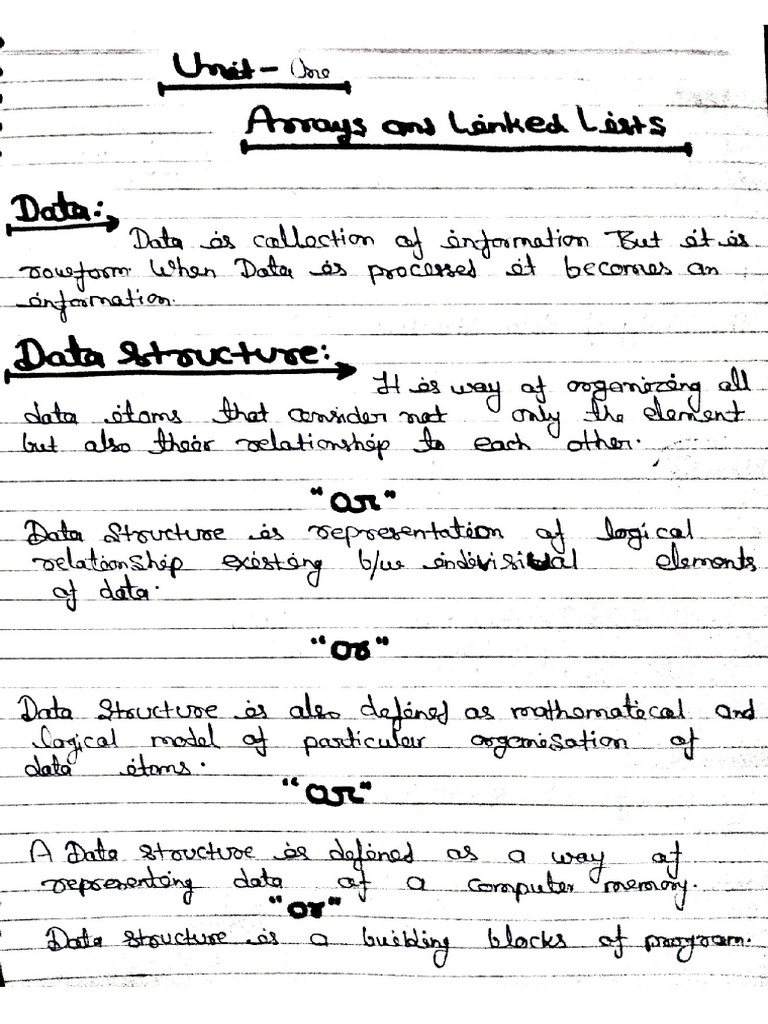 Unit - One
Arrays and Linked Lists
Data:
Data is collection of information But it is
rawform. When Data is processed it becomes an
information.
Data Structure:
It is way of organizing all
data items that consider not only the element
but also their relationship to each other.
"or"
Data Structure is representation of logical
relationship existing b/w indivisiual elements
of data.
"or"
Data Structure is also defined as mathematical and
logical model of particular organisation of
data items.
"or"
A Data structure is defined as a way of
representing data of a computer memory.
"or"
Data structure is a building blocks of program.